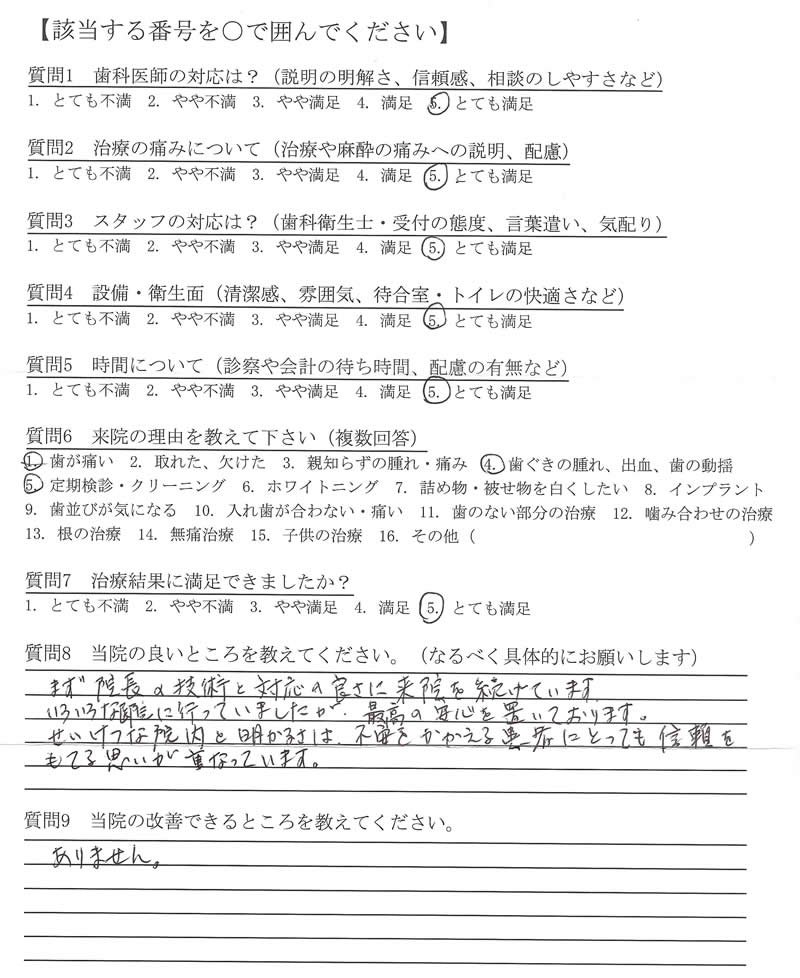 【該当する番号を〇で囲んでください】
質問1　歯科医師の対応は？（説明の明解さ、信頼感、相談のしやすさなど）
1. とても不満　2. やや不満　3. やや満足　4. 満足　5. とても満足
質問2　治療の痛みについて（治療や麻酔の痛みへの説明、配慮）
1. とても不満　2. やや不満　3. やや満足　4. 満足　5. とても満足
質問3　スタッフの対応は？（歯科衛生士・受付の態度、言葉遣い、気配り）
1. とても不満　2. やや不満　3. やや満足　4. 満足　5. とても満足
質問4　設備・衛生面（清潔感、雰囲気、待合室・トイレの快適さなど）
1. とても不満　2. やや不満　3. やや満足　4. 満足　5. とても満足
質問5　時間について（診察や会計の待ち時間、配慮の有無など）
1. とても不満　2. やや不満　3. やや満足　4. 満足　5. とても満足
質問6　来院の理由を教えて下さい（複数回答）
1. 歯が痛い　2. 取れた、欠けた　3. 親知らずの腫れ・痛み　4. 歯ぐきの腫れ、出血、歯の動揺
5. 定期検診・クリーニング　6. ホワイトニング　7. 詰め物・被せ物を白くしたい　8. インプラント
9. 歯並びが気になる　10. 入れ歯が合わない・痛い　11. 歯のない部分の治療　12. 噛み合わせの治療
13. 根の治療　14. 無痛治療　15. 子供の治療　16. その他（　　　　　　　　　　　　　　　）
質問7　治療結果に満足できましたか？
1. とても不満　2. やや不満　3. やや満足　4. 満足　5. とても満足
質問8　当院の良いところを教えてください。（なるべく具体的にお願いします）
まず院長の技術と対応の良さに来院を続けています
いろいろな医院に行っていましたが、最高の安心を置いております。
せいけつな院内と明かるさは、不安をかかえる患者にとっても信頼を
もてる思いが重なっています。
質問9　当院の改善できるところを教えてください。
ありません。